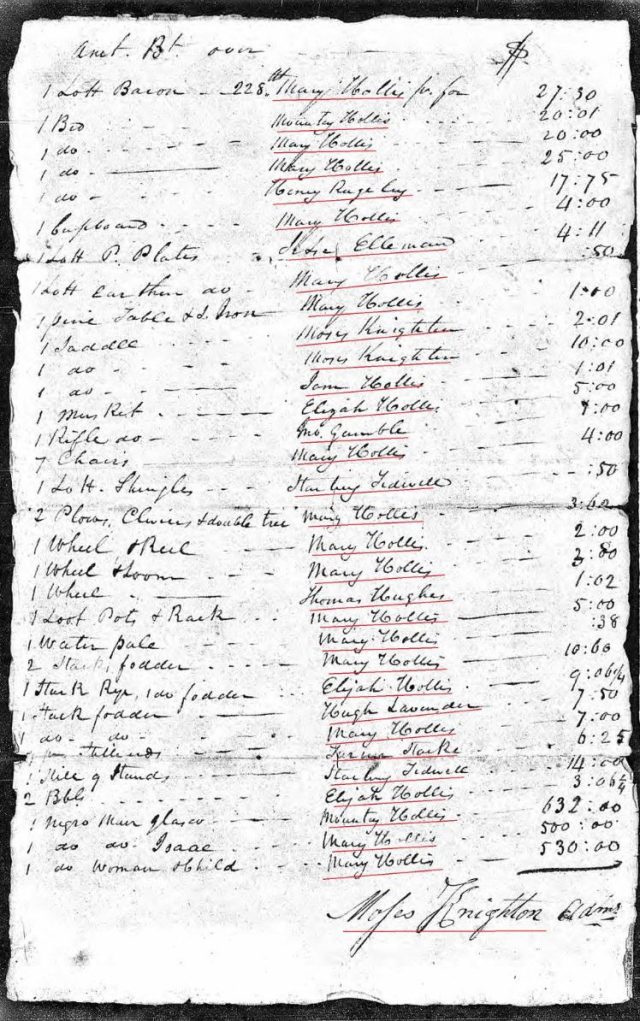 Amt. Bt. over $
1 Lott Bacon 228 lb Mary Hollis pr. for 27:30
1 Bed Mountey Hollis 20:01
1 do Mary Hollis 20:00
1 do Mary Hollis 25:00
1 do Henry Rugeley 17:75
1 Cupboard Mary Hollis 4:00
1 Lott P. Plates Elleman 4:11
1 Lott Earthen do Mary Hollis :50
1 pine Table & S. Iron Mary Hollis 1:00
1 Saddle Moses Knighten 2:01
1 do Moses Knighten 10:00
1 do Jam Hollis 1:01
1 Musket Elijah Hollis 5:00
1 Rifle do Gamble
7 Chairs Mary Hollis 4:00
1 Lott Shingles Starling Tidwell :50
2 Plows, Clevises & double tree Mary Hollis 3:62
1 Wheel & Reel Mary Hollis 2:00
1 Wheel & Loom Mary Hollis
1 Wheel Thomas Hughes 1:02
1 Loot Pots & Rack Mary Hollis 5:00
1 Water pale Mary Hollis :38
2 Stack, fodder Mary Hollis 10:60
1 Stack Rye, 1 do fodder Elijah Hollis
1 Stack fodder Hugh Lavender 7:50
1 do do Mary Hollis 7:00
1 pr Starke 6:25
1 Still & Stands Starling Tidwell 14:00
2 Bbls Elijah Hollis
1 negro Man Glasco Mountey Hollis 632:00
1 do do Isaac Mary Hollis 500:00
1 do Woman & Child Mary Hollis 530:00
Moses Knighton Adms